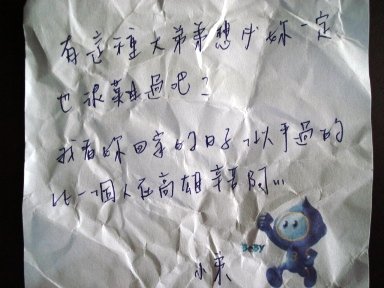 有這種大弟弟想必妳一定
也很難過吧?
我看妳回家的日子似乎過的
比一個人在高雄辛苦阿...
小